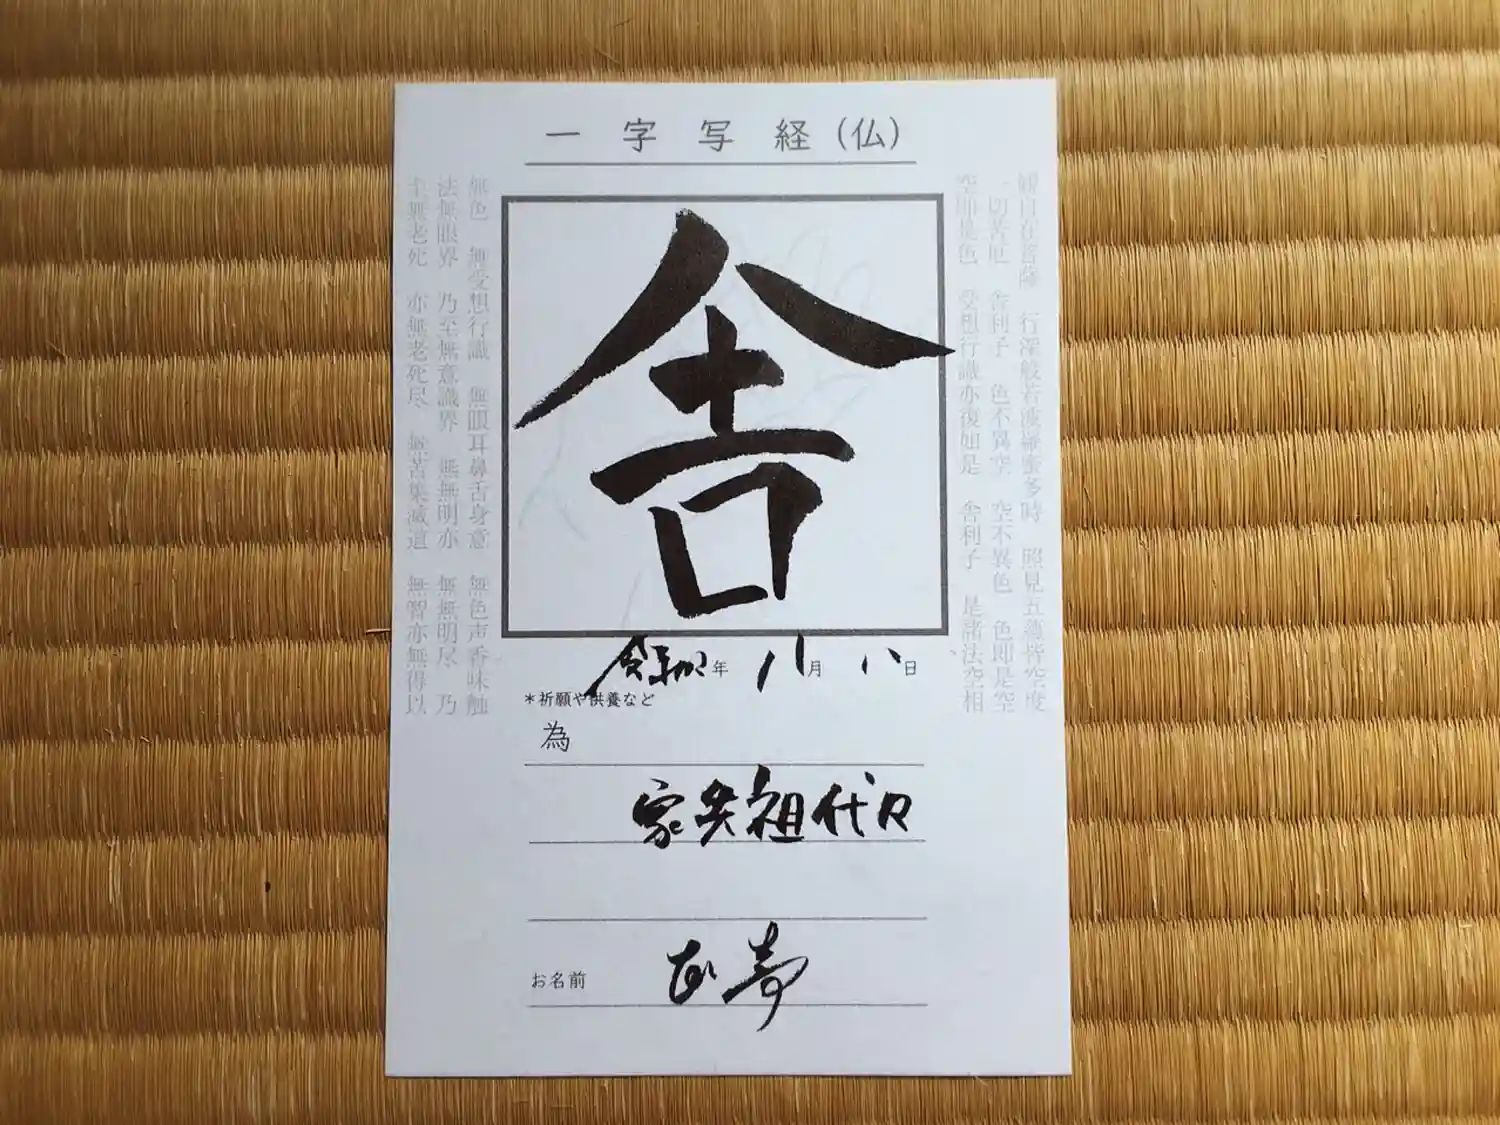 一字写経（仏）
観自在菩薩 行深般若波羅蜜多時 照見五蘊皆空度
一切苦厄 舎利子 色不異空 空不異色 色即是空
空即是色 受想行識亦復如是 舎利子 是諸法空相
舎
無色 無受想行識 無眼耳鼻舌身意 無色声香味触
法無眼界 乃至無意識界 無無明亦 無無明尽 乃
至無老死 亦無老死尽 無苦集滅道 無智亦無得以
年 八月 八日
＊祈願や供養など
為
家先祖代々
お名前